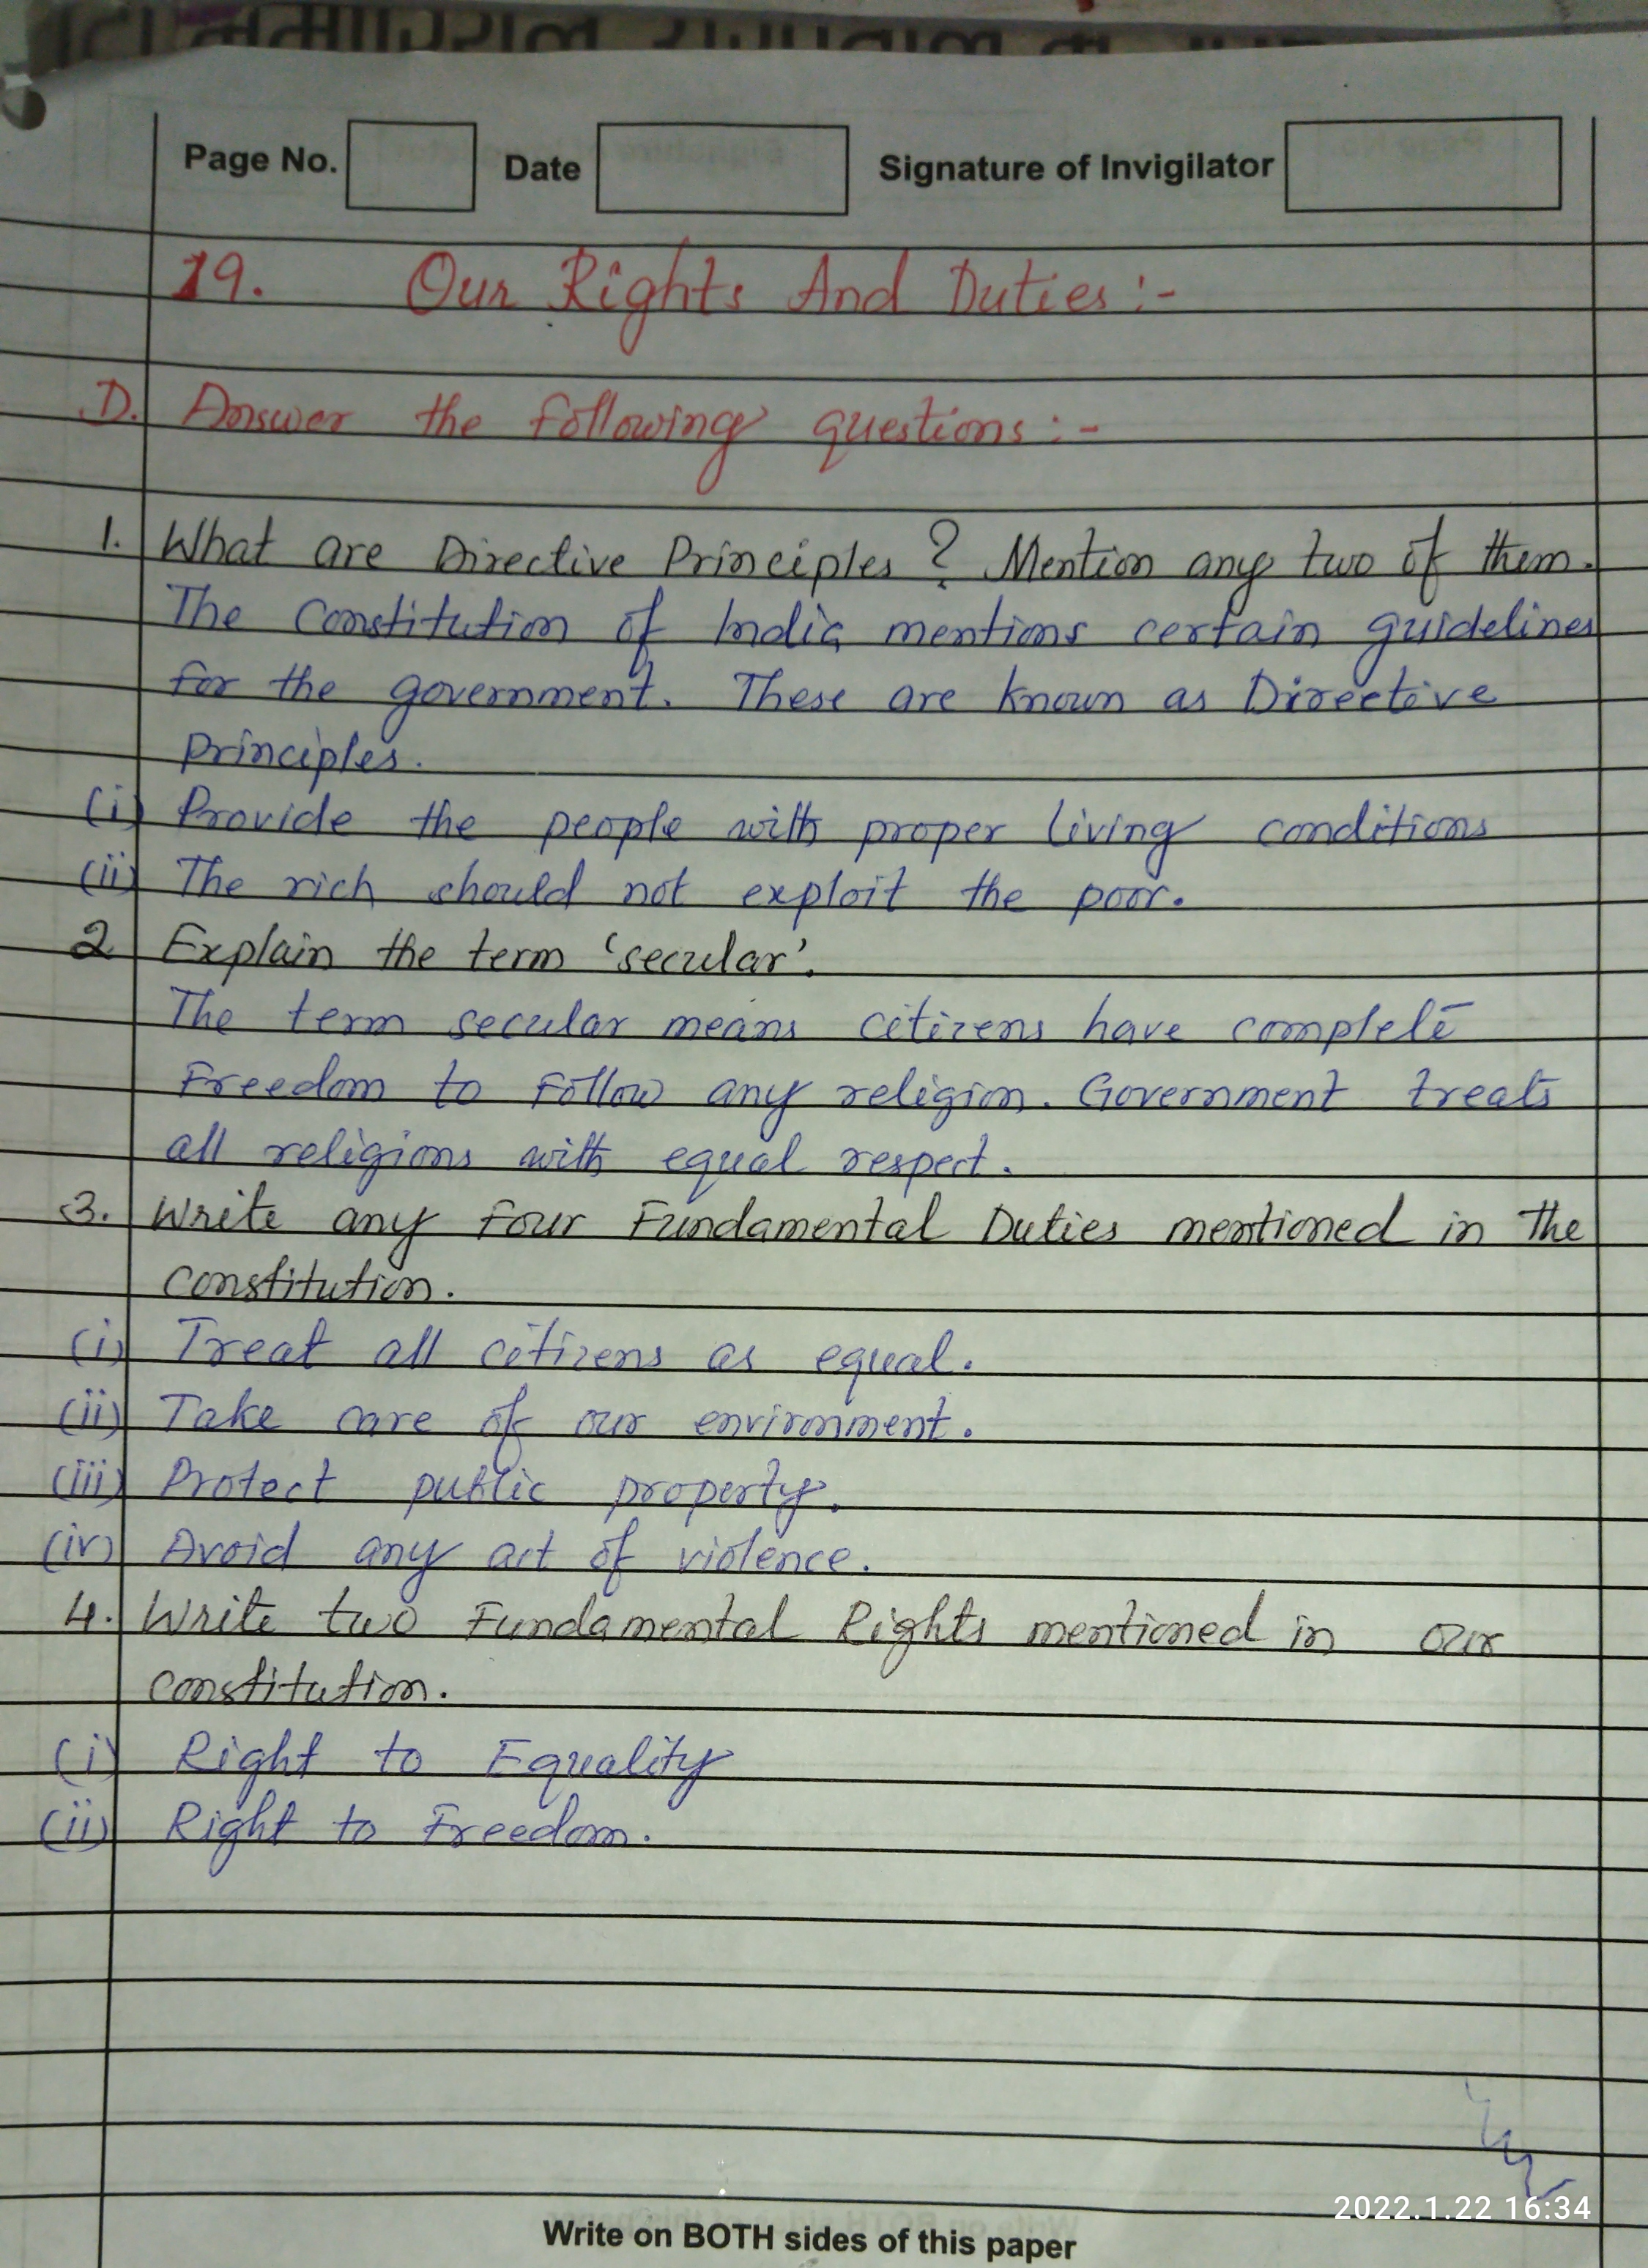 Page No. Date Signature of Invigilator
19. Our Rights And Duties :-
D. Answer the following questions :-
1. What are Directive Principles ? Mention any two of them.
The Constitution of India mentions certain guidelines
for the government. These are known as Directive
Principles.
(i) Provide the people with proper living conditions
(ii) The rich should not exploit the poor.
2 Explain the term 'secular'.
The term secular means citizens have complete
Freedom to Follow any religion. Government treats
all religions with equal respect.
3. Write any four Fundamental Duties mentioned in the
constitution.
(i) Treat all citizens as equal.
(ii) Take care of our environment.
(iii) Protect public property.
(iv) Avoid any act of violence.
4. Write two Fundamental Rights mentioned in our
constitution.
(i) Right to Equality
(ii) Right to Freedom.
2022.1.22 16:34
Write on BOTH sides of this paper